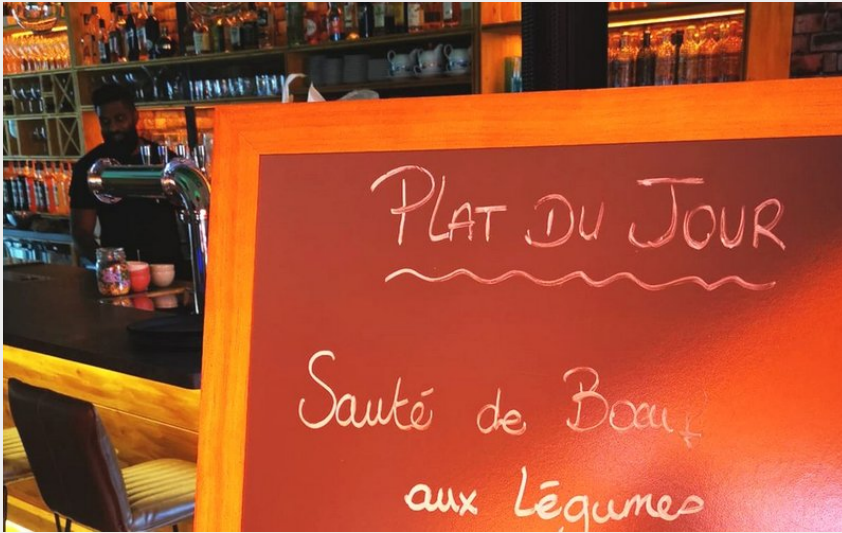 PLAT DU JOUR
Sauté de Boeuf
aux Légumes